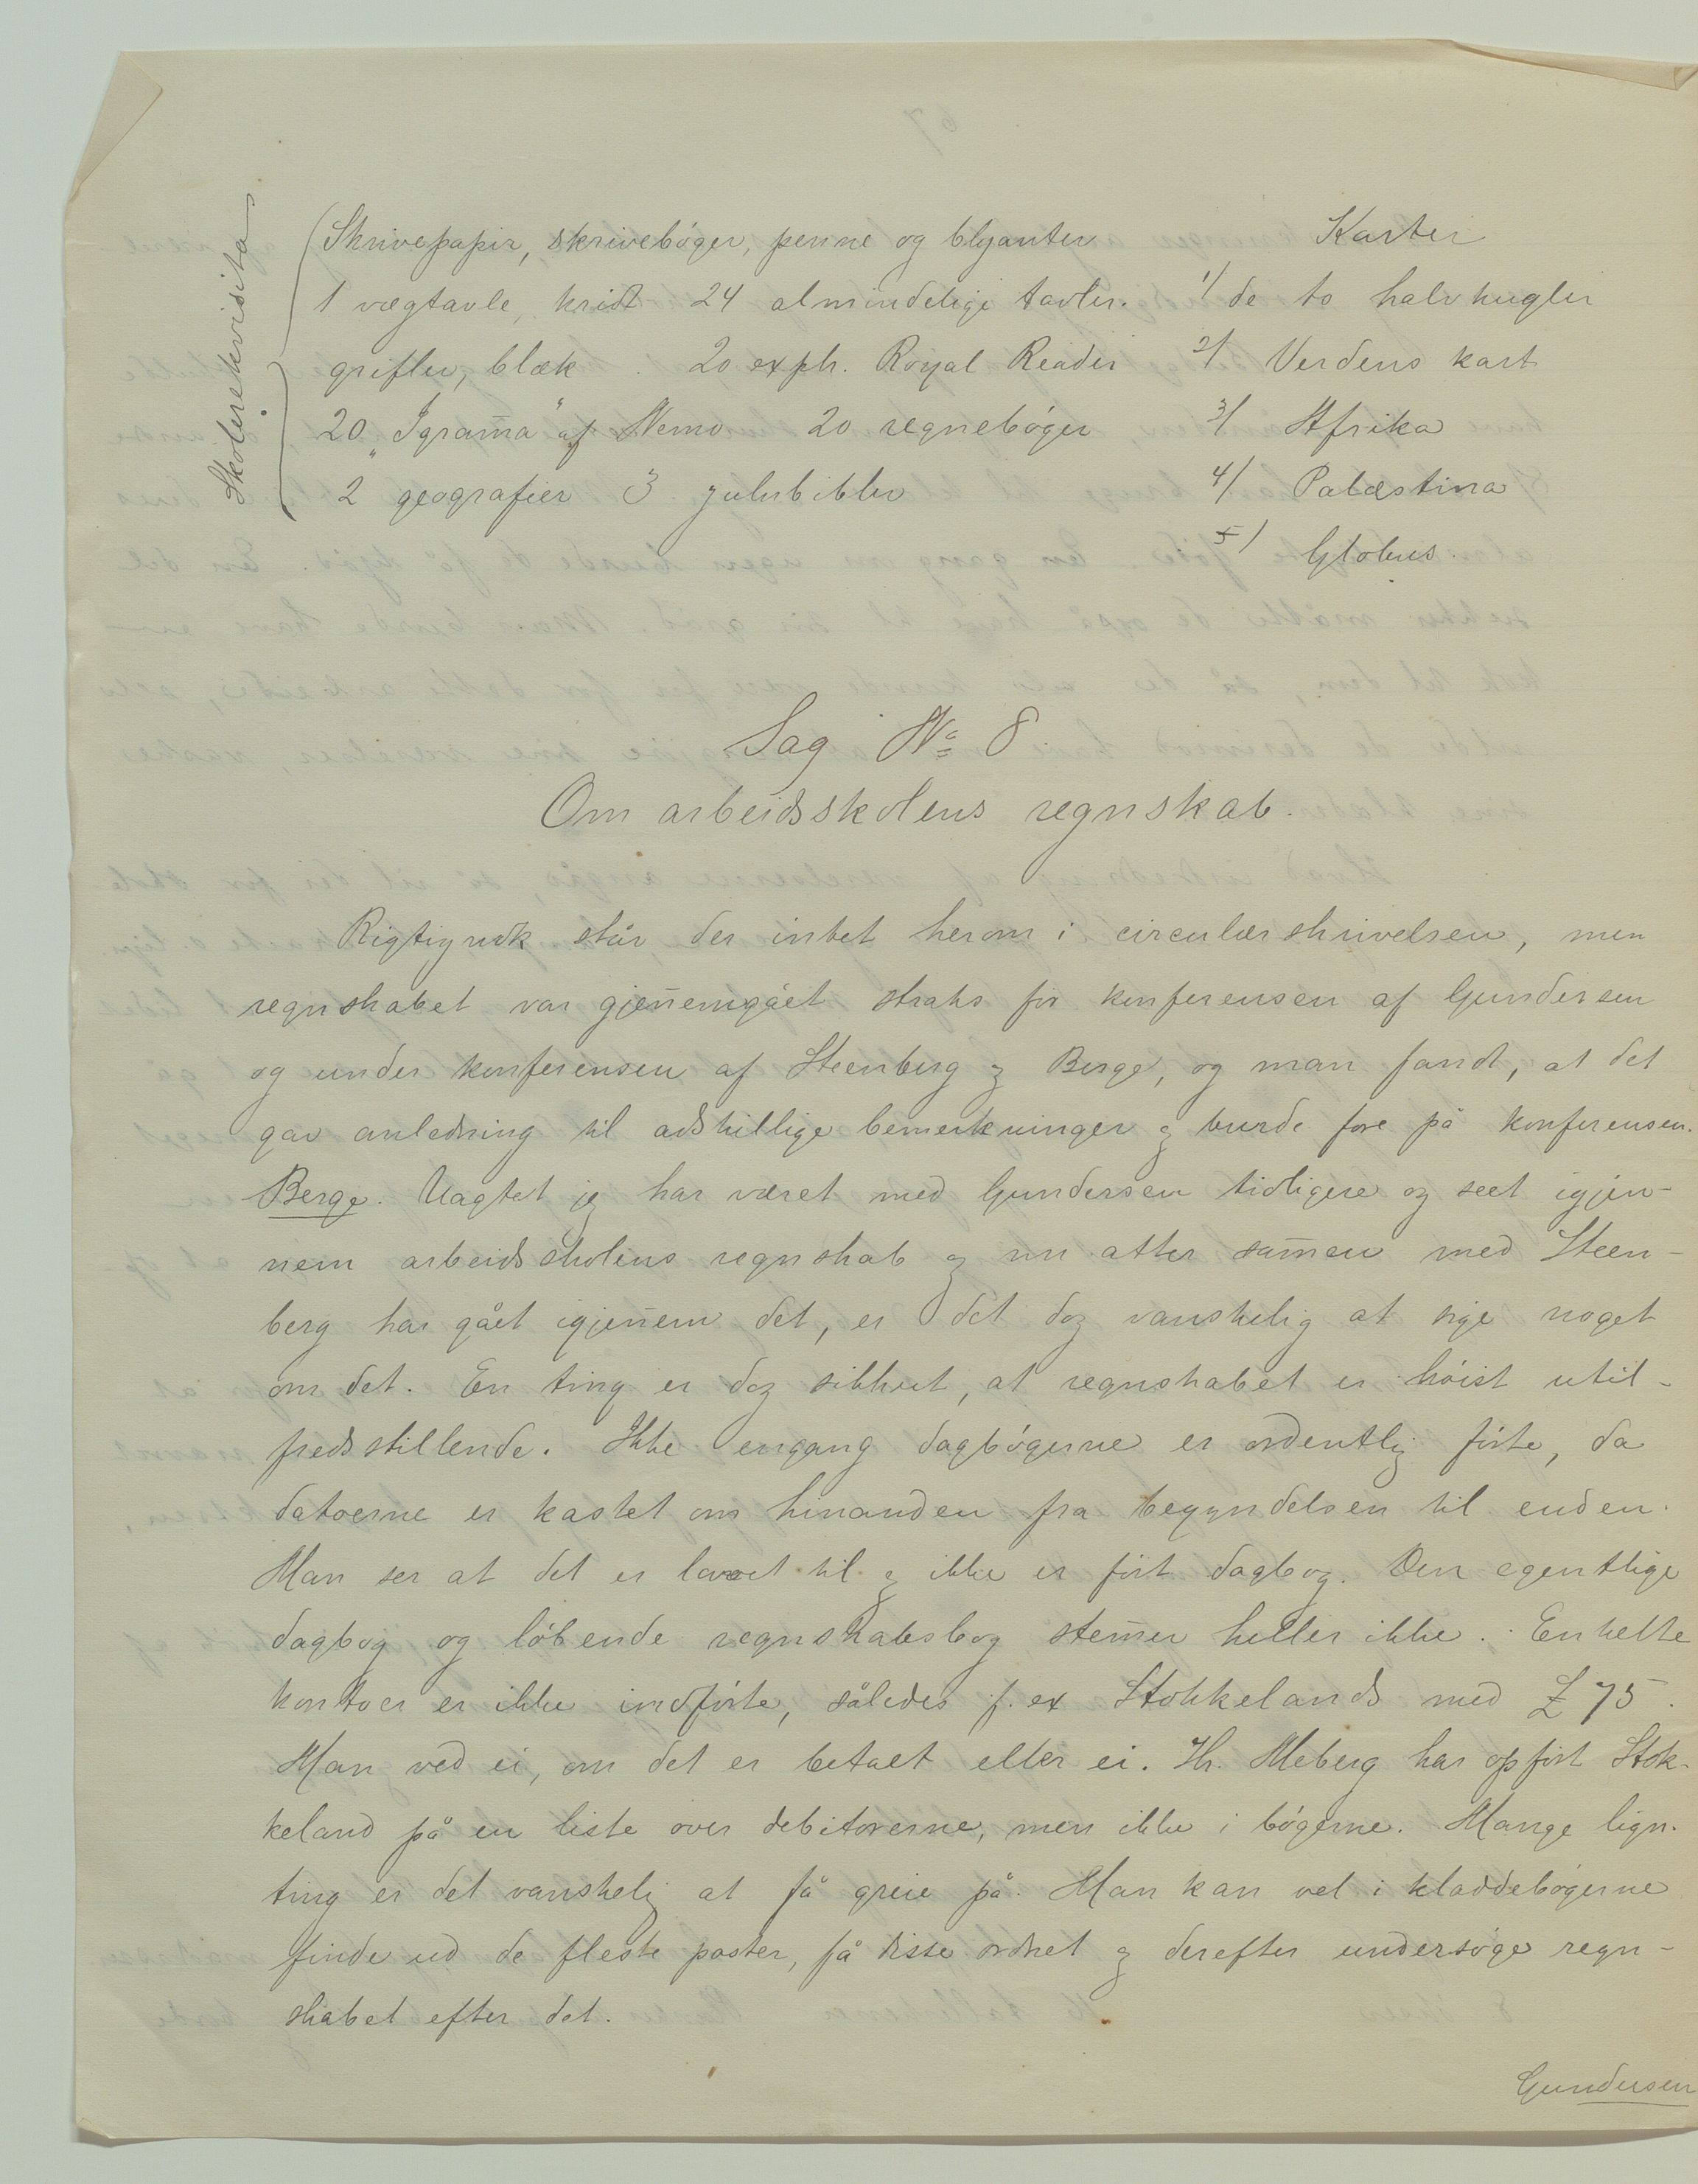 Skolerekvisita
Skrivepapir, skrivebøger, penne og blyanter
1 vægtavle, kridt 24 almindelige tavler.
grifler, blæk . 20 expl. Royal Reader
20 "Igram̄a" af Nemo 20 regnebøger
2 geografier 3 zulubibler
Karter
1/ de to halvkugler
2/ Verdens kart
3/ Afrika
4/ Palæstina
5/ Globus.
Sag No 8.
Om arbeidsskolens regnskab.
Rigtignok står der intet herom i circulærskrivelsen, men
regnskabet var gjen̄emgået straks før konferensen af Gundersen
og under konferensen af Steenberg og Berge, og man fandt, at det
gav anledning til adskillige bemerkninger og burde fore på konferensen.
Berge. Uagtet jeg har været med Gundersen tidligere og seet igjen-
nem arbeidsskolens regnskab og nu atter sam̄en med Steen-
berg har gået igjen̄em det, er det dog vanskelig at sige noget
om det. En ting er dog sikkert, at regnskabet er høist util-
fredsstillende. Ikke engang dagbøgerne er ordentlig førte, da
datoerne er kastet om hinanden fra begyndelsen til enden.
Man ser at det er lavet til og ikke er ført dagbog. Den egentlige
dagbog og løbende regnskabsbog stem̄er heller ikke. Enkelte
kontoer er ikke indførte, således f. ex Stokkelands med £ 75.
Man ved ei, om det er betalt eller ei. Hr. Meberg har opført Stok-
keland på en liste over debitorerne, men ikke i bøgerne. Mange lign.
ting er det vanskelig at få greie på. Man kan vel i kladdebøgerne
finde ud de fleste poster, få disse ordnet og derefter undersøge regn-
skabet efter det.
Gundersen